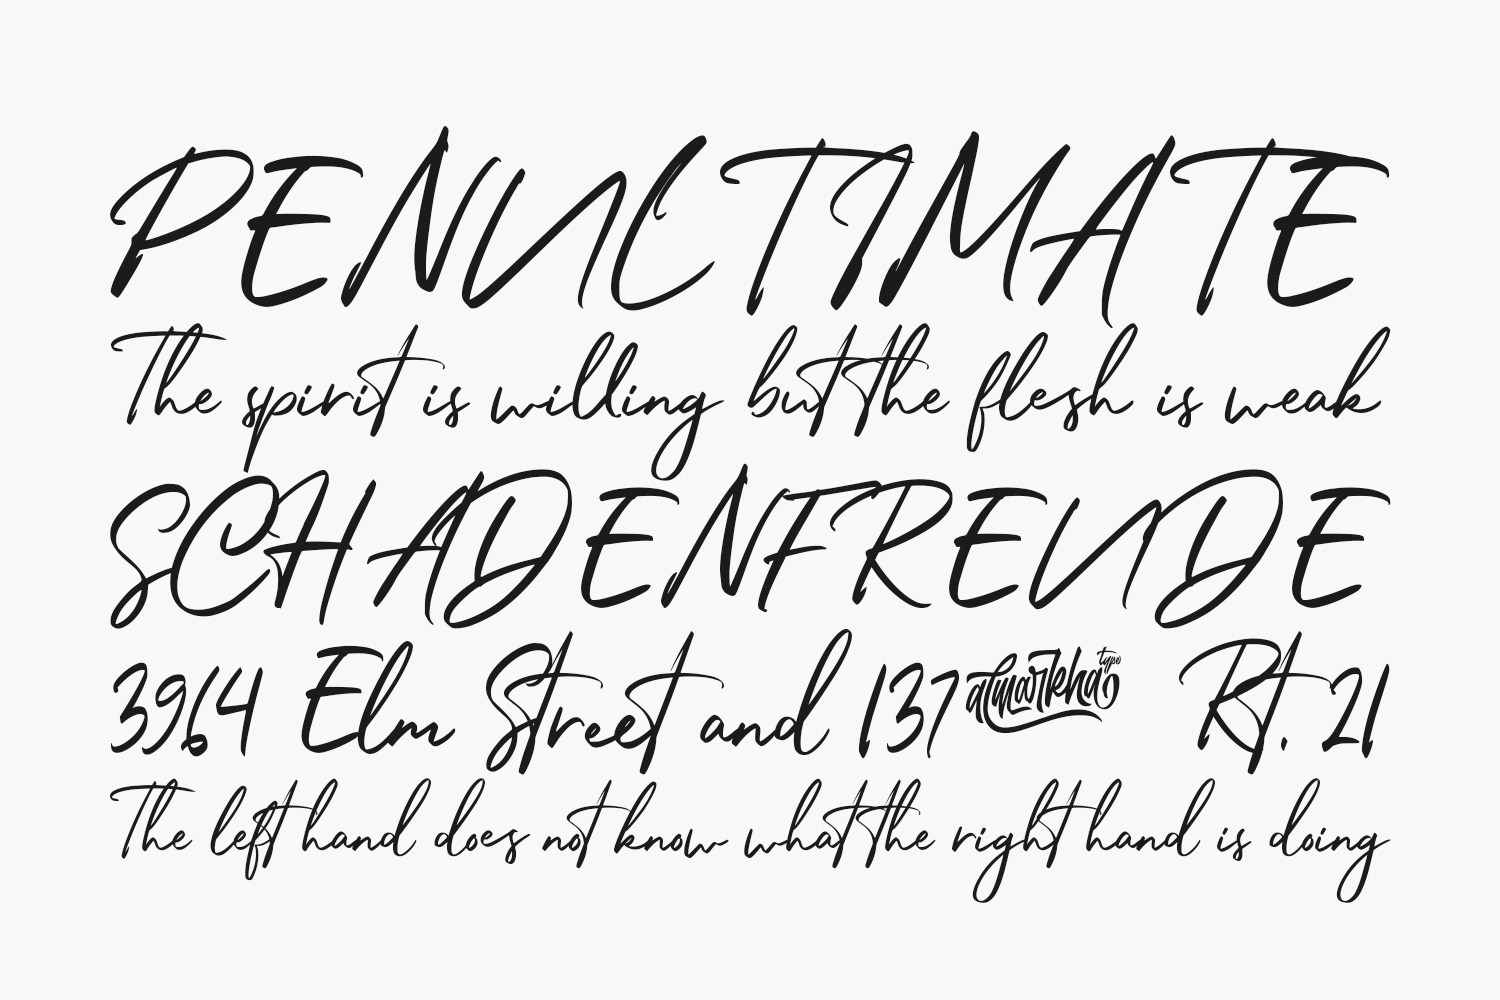 PENULTIMATE
The spirit is willing but the flesh is weak
SCHADENFREUDE
3964 Elm Street and 137 almarkha typo Rt. 21
The left hand does not know what the right hand is doing